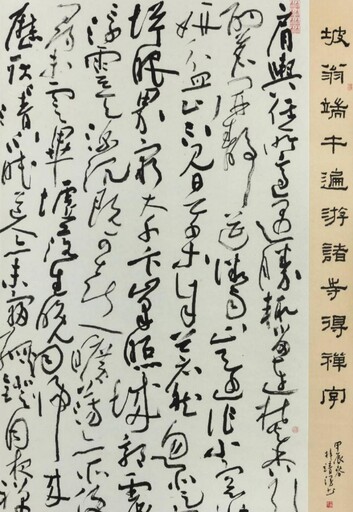 坡翁端午遍游諸寺得禪字
甲辰春
肩輿任所適遇勝輒留連焚香引
酌茗開靜筵微雨止還作小窗
妍盆山不見日草木自蒼然忽登
塔眼界窮大千卞峰照城郭震
浮雲天深沉既可喜曠蕩亦所
尋未云畢墟落生晚煙歸來
歷耿耿清不眠道人亦未寢孤燈同夜禪